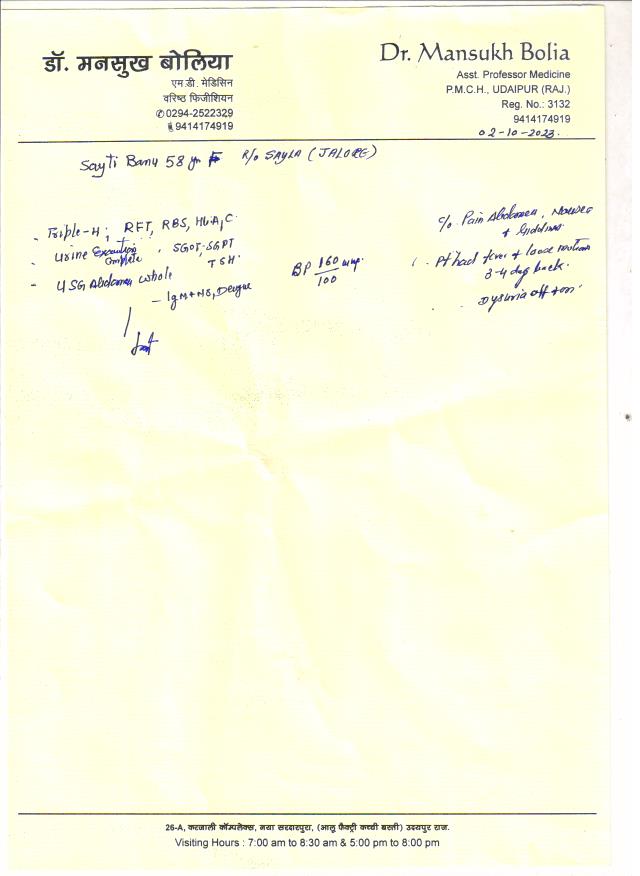 डॉ. मनसुख बोलिया
एम.डी. मेडिसिन
वरिष्ठ फिजीशियन
✆0294-2522329
9414174919
Dr. Mansukh Bolia
Asst. Professor Medicine
P.M.C.H., UDAIPUR (RAJ.)
Reg. No.: 3132
9414174919
02-10-2023
Sayti Banu 58 yr F R/o SAYLA (JALORE)
- Triple-H; RFT, RBS, HbA1C
- Urine Complete, SGOT, SGPT
TSH
- USG Abdomen Whole
- IgM+NS, Dengue
BP 160 mmHg
100
C/o Pain Abdomen, Nausea
+ Giddiness
Pt had fever + loose motions
3-4 day back.
Dysuria off + on
26-A, करजाली कॉम्पलेक्स, नया सरदारपुरा, (आलू फैक्ट्री कच्ची बस्ती) उदयपुर राज.
Visiting Hours : 7:00 am to 8:30 am & 5:00 pm to 8:00 pm